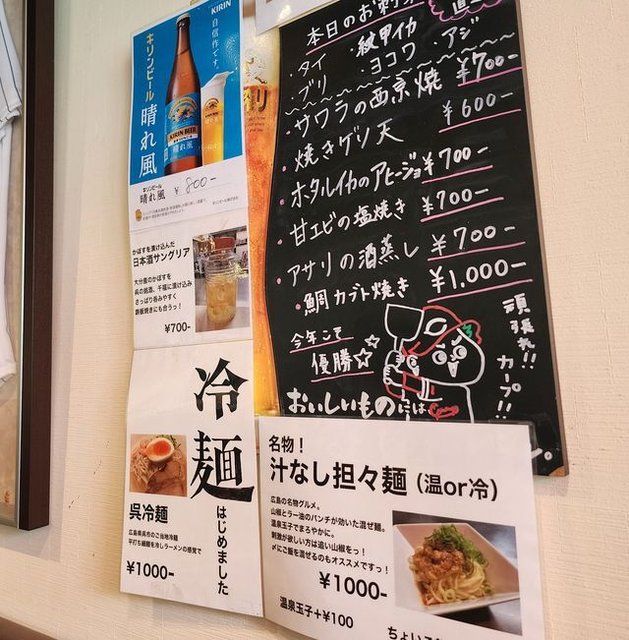 KIRIN
自信作です。
キリンビール
晴れ風
KIRIN BEER
晴れ風
キリンビール
晴れ風 ¥800-
かぼすを漬け込んだ
日本酒サングリア
大分産のかぼすを
呉の銘酒、千福に漬け込み
さっぱり呑みやすく
鉄板焼きにも合うっ!
¥700-
冷麺
はじめました
呉冷麺
広島県呉市のご当地冷麺
平打ち細麺を冷しラーメンの感覚で
¥1000-
本日のお刺
・タイ ・紋甲イカ
・ブリ ・ヨコワ ・アジ
・サワラの西京焼 ¥700-
・焼きゲソ天 ¥600-
・ホタルイカのアヒージョ ¥700-
・甘エビの塩焼き ¥700-
・アサリの酒蒸し ¥700-
・鯛カブト焼き ¥1,000-
今年こそ
優勝☆
頑張れ!!
カープ!!
おいしいものには
名物!
汁なし担々麺(温or冷)
広島の名物グルメ。
山椒とラー油のパンチが効いた混ぜ麺。
温泉玉子でまろやかに。
刺激が欲しい方は追い山椒をっ!
〆にご飯を混ぜるのもオススメですっ!
¥1000-
温泉玉子+¥100